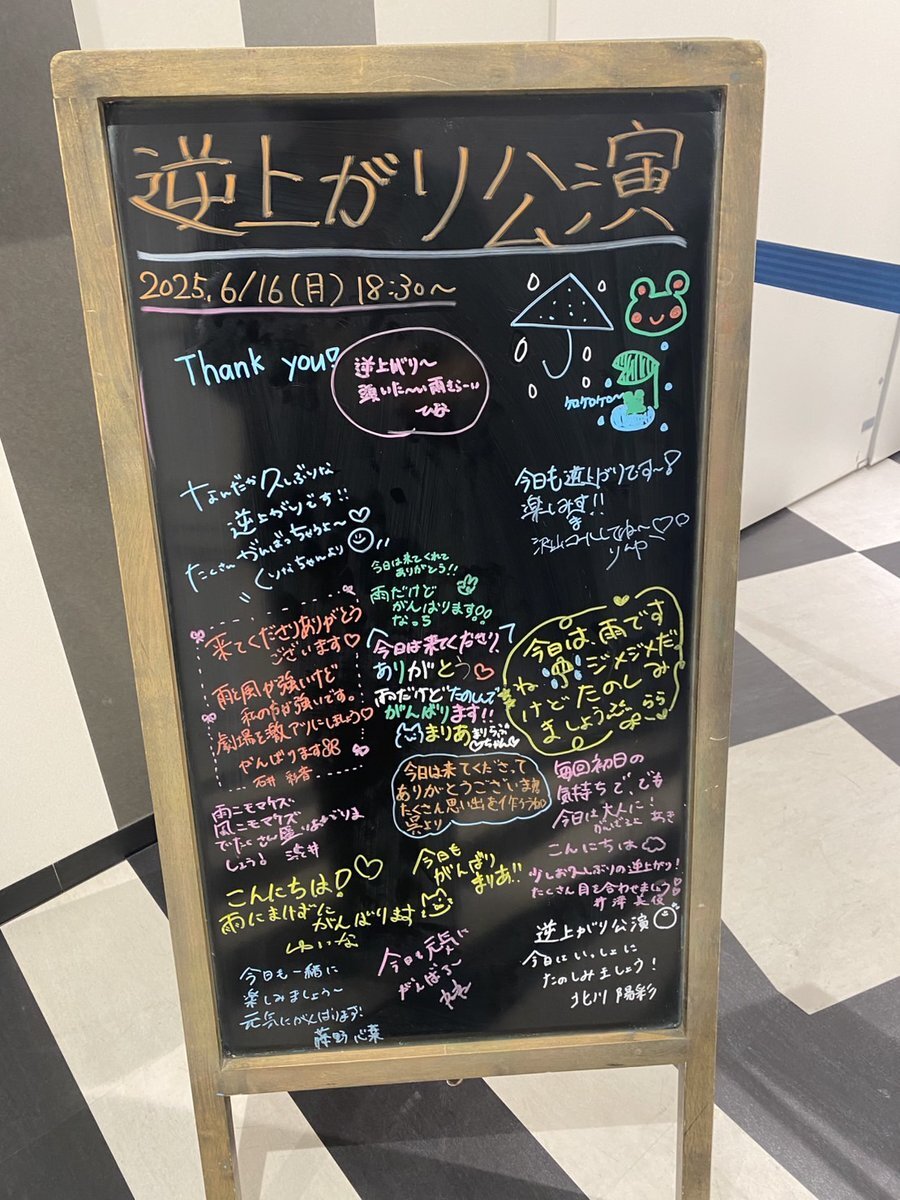 逆上がり公演
2025.6/16(月) 18:30〜
Thank you♡
逆上がり〜
頭いた〜い雨むらーい
ひな
ケロケロ
なんだか久しぶりな
逆上がりです!!
たくさんがんばっちゃうよ〜♡
くりなちゃんより
今日も逆上がりです〜!
楽しみます!!
沢山コールしてね〜♡
りんや
今日は来てくれて
ありがとう!!
雨だけど
がんばります!!
なっち
来てくださりありがとう
ございます♡
雨と風が強いけど
私の方が強いです。
劇場を激アツにしましょう♡
がんばります
石井 彩音
今日は来てくださり、
ありがとう♡
雨だけどたのしんで
がんばります!!
まりあ
今日は、雨です
ね ジメジメだ
けどたのしみ
ましょう
らら
今日は来てくださって
ありがとうございます!!
たくさん思い出を作ろうね
呉より
毎回初日の
気持ちで、でも
今日は大人に!
がんばるよ あき
雨ニモマケズ
風ニモマケズ
でたくさん盛りあがりま
しょう!
こんにちは
少しお久しぶりの逆上がり!
たくさん目を合わせましょう
こんにちは!♡
雨にまけずに
がんばります
ゆいな
今日も
がんばり
まりあ!!
今日も元気に
がんばる〜
逆上がり公演
今日はいっしょに
たのしみましょう!
北川 陽彩
今日も一緒に
楽しみましょう〜
元気にがんばります!
藤野 心葉